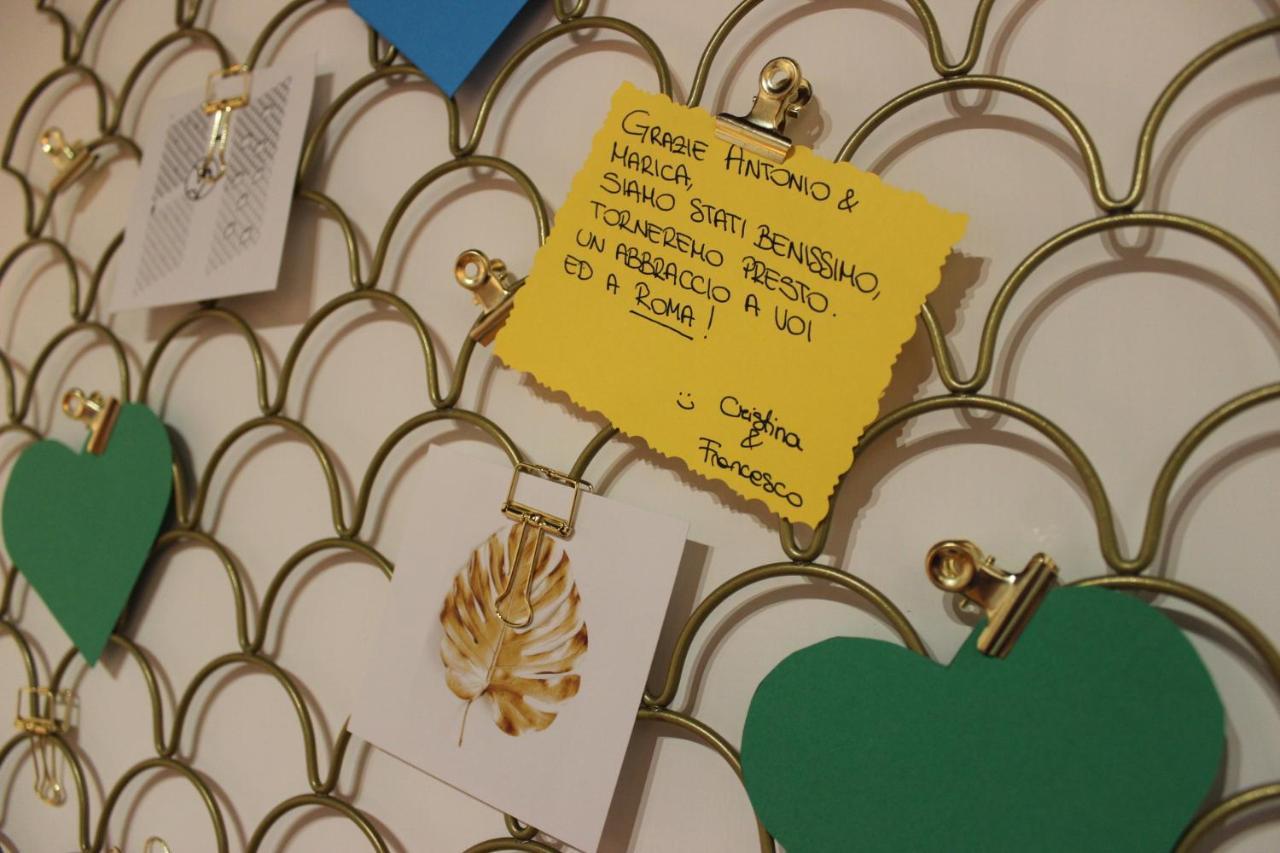 GRAZIE ANTONIO &
MARICA,
SIAMO STATI BENISSIMO,
TORNEREMO PRESTO.
UN ABBRACCIO A VOI
ED A ROMA!
Cristina
&
Francesco